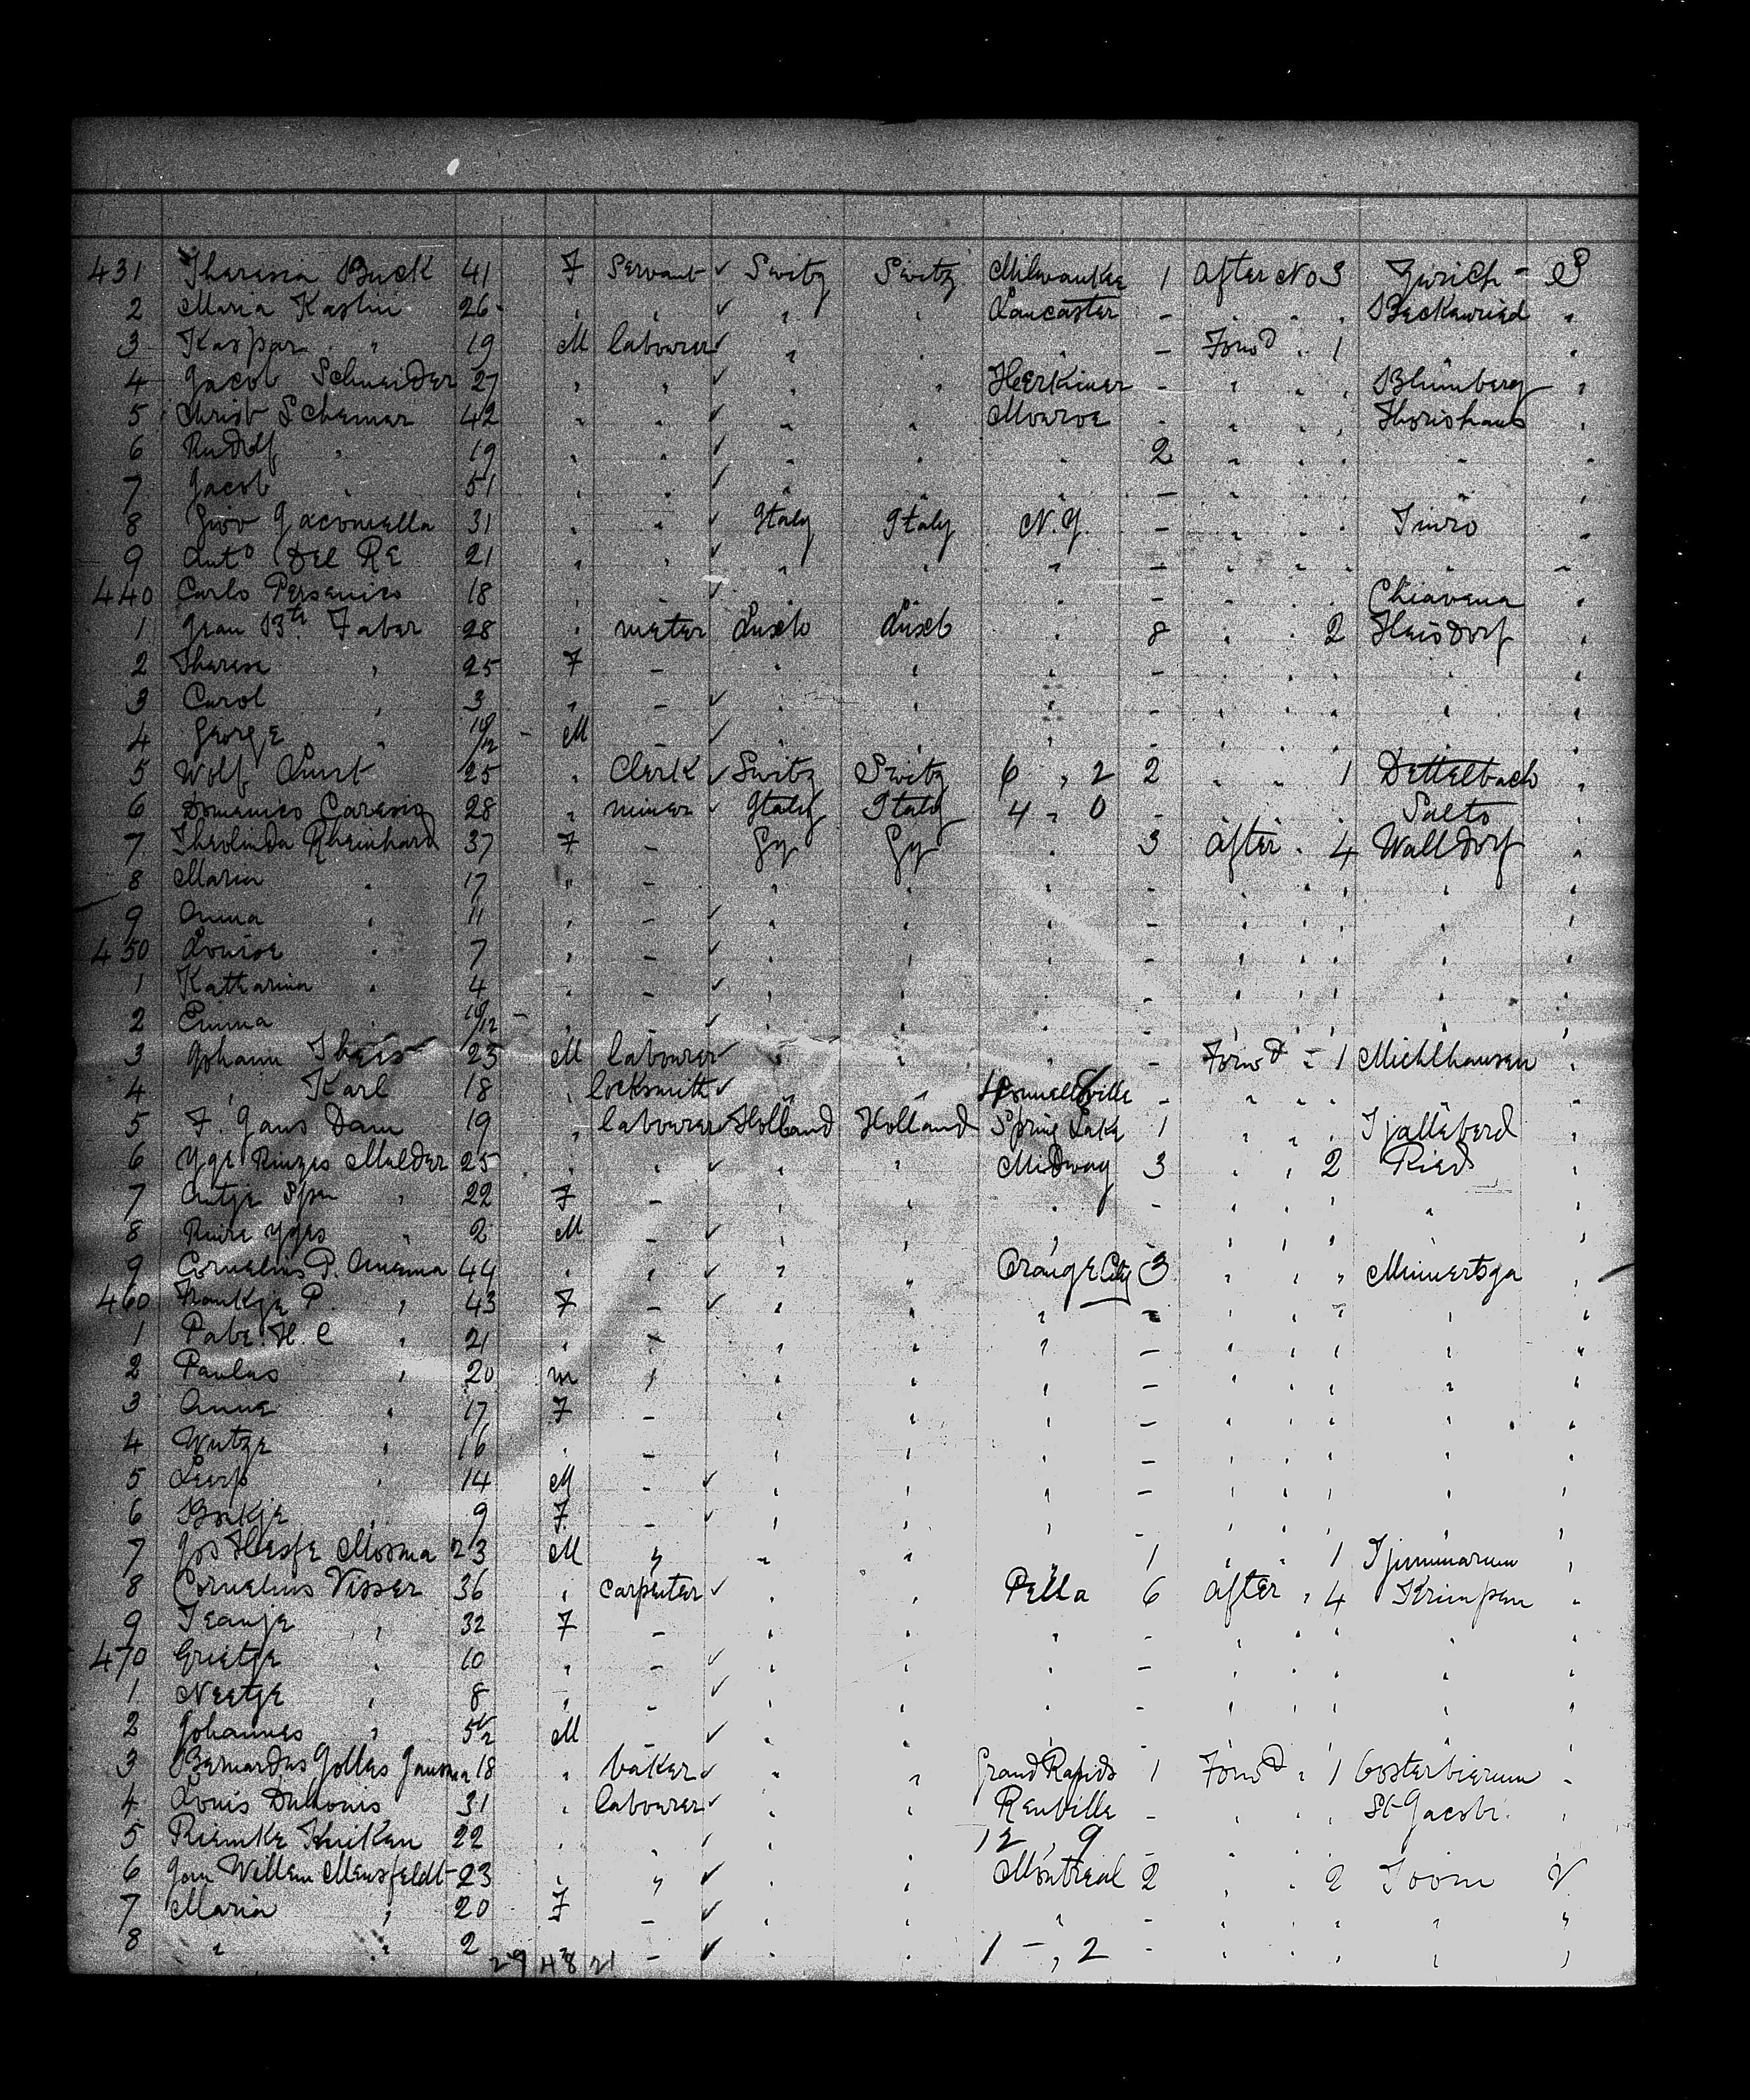 431 Theresia Buck 41 F Servant ✓ Switz Switz Milwaukee 1 After No 3 Zürich - S
2 Maria Kaslin 26 - " " ✓ " " Lancaster - " " " Beckenried "
3 Kaspar " 19 M labourer ✓ " " " - Forwd " 1 " "
4 Jacob Schneider 27 " " ✓ " " Herkimer - " " " Blumberg "
5 Christ Schemar 42 " " ✓ " " Monroe - " " " "
6 Rudolf " 19 " " ✓ " " " 2 " " " " "
7 Jacob " 51 " " ✓ " " " - " " " " "
8 Giov Giacomella 31 " " ✓ Italy Italy N.Y. - " " " "
9 Anto Del Re 21 " " ✓ " " " - " " " " "
440 Carlo Persenico 18 " " ✓ " " " - " " " Chiavena "
1 Jean Bte Faber 28 " Luxb Luxb " 8 " " 2 Heisdorf "
2 Therese " 25 F - " " " - " " " " "
3 Carol " 3 " - ✓ " " " - " " " " "
4 George " 10/12 - M - ✓ " " " - " " " " "
5 Wolf 25 " Clerk ✓ Switz Switz 6 , 2 2 " " 1 Dettelbach "
6 Domenico 28 " miner ✓ Italy Italy 4 - 0 - " " " Salto "
7 Theolinda Rheinhard 37 F - Gy Gy " 3 After " 4 Walldorf "
8 Maria " 17 " - " " " - " " " " "
9 Anna " 11 " - ✓ " " " - " " " " "
450 Louise " 7 " - ✓ " " " - " " " " "
1 Katharina " 4 " - ✓ " " " - " " " " "
2 Emma " 10/12 - " - ✓ " " " - " " " " "
3 Johann Theis 25 M labourer ✓ " " " - Forwd " 1 Michlhausen "
4 " Karl 18 " locksmith ✓ " " Hornellsville - " " " " "
5 F. Jans Dam 19 " labourer Holland Holland Spring Lake 1 " " " Tjalleberd "
6 Yge Rinzes Mulder 25 " " ✓ " " Midway 3 " " 2 Ried "
7 Antje " 22 F - " " " - " " " " "
8 Yges " 2 M - ✓ " " " " " " " "
9 Cornelius P. Anema 44 " " ✓ " " Orange City 3 " " " Minnertsga "
460 Fraukje P. " 43 F - ✓ " " " - " " " " "
1 H. C " 21 " - " " " - " " " " "
2 Paulus " 20 m " " " " - " " " " "
3 Anne " 17 F - " " " - " " " " "
4 " 16 " - " " " - " " " " "
5 " 14 M - ✓ " " " - " " " " "
6 Bakje " 9 F - ✓ " " " - " " " " "
7 Mosma 23 M " " " 1 " " 1 Tjummarum "
8 Cornelius Visser 36 " carpenter ✓ " " Pella 6 After " 4 Krimpen "
9 Teanje " 32 F - " " " - " " " " "
470 Grietje " 10 " - ✓ " " " - " " " " "
1 Neetje " 8 " - ✓ " " " - " " " " "
2 Johannes " 5 1/2 M ✓ " " " " " " " "
3 Bernardus Golles 18 " baker ✓ " " Grand Rapids 1 Forwd " 1 Oosterbierum -
4 Louis 31 " labourer ✓ " " Renville - " " " St Jacobi "
5 Riemke Kuiken 22 " " ✓ " " 12 , 9 " " " "
6 Jan Willem Mensfeldt 23 " " ✓ " " Montreal 2 " " 2
7 Maria " 20 F - ✓ " " " - " " " " "
8 " " 2 " - ✓ " " 1 - , 2 - " " " " "
29 M 8 21